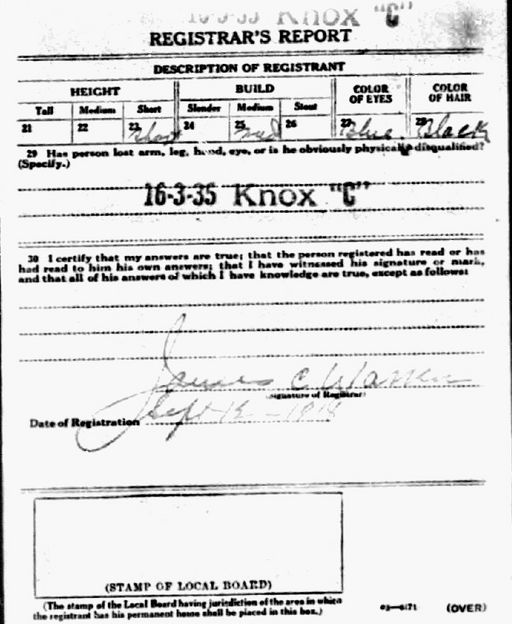 16-3-35 Knox "C"
REGISTRAR'S REPORT
DESCRIPTION OF REGISTRANT
HEIGHT BUILD COLOR OF EYES COLOR OF HAIR
Tall Medium Short Slender Medium Stout
21 22 23 short 24 25 med 26 27 Blue 28 Black
29 Has person lost arm, leg, hand, eye, or is he obviously physically disqualified?
(Specify.)
16-3-35 Knox "C"
30 I certify that my answers are true; that the person registered has read or has
had read to him his own answers; that I have witnessed his signature or mark,
and that all of his answers of which I have knowledge are true, except as follows:
James C Warren
(Signature of Registrar)
Date of Registration Sept 12 - 1918
(STAMP OF LOCAL BOARD)
(The stamp of the Local Board having jurisdiction of the area in which
the registrant has his permanent home shall be placed in this box.)
03-6171 (OVER)